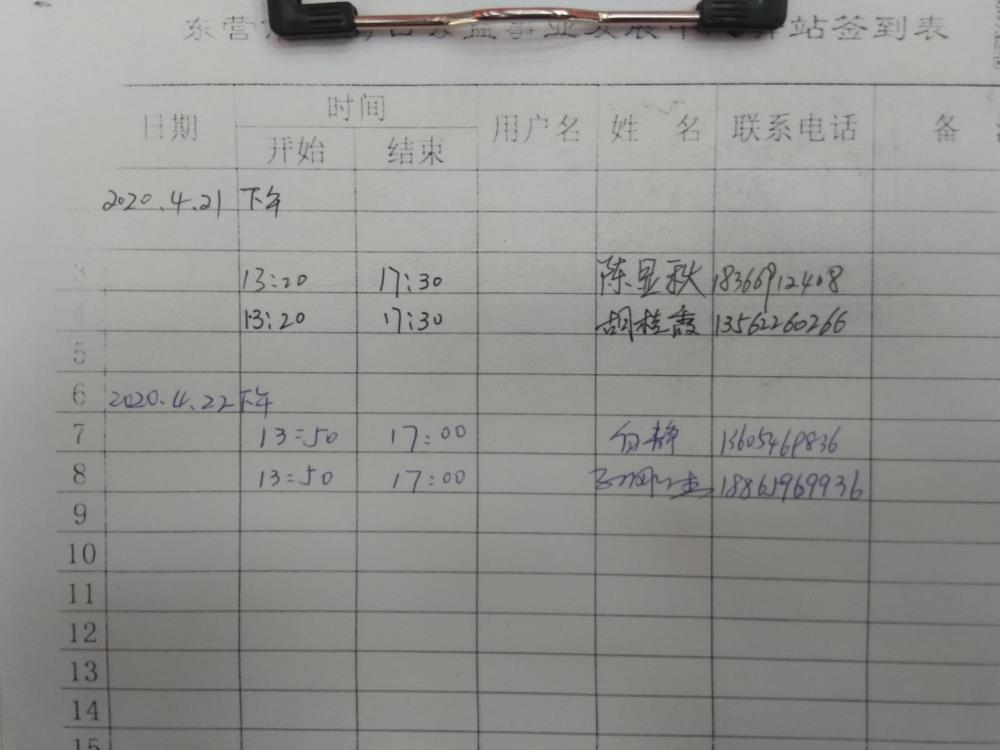 东营 站签到表
日期 时间 用户名 姓 名 联系电话 备
开始 结束
2020.4.21 下午
3 13:20 17:30 陈显秋 18366912408
4 13:20 17:30 胡桂霞 13562260266
5
6 2020.4.22 下午
7 13:50 17:00 静 13605469836
8 13:50 17:00 18861969936
9
10
11
12
13
14
15